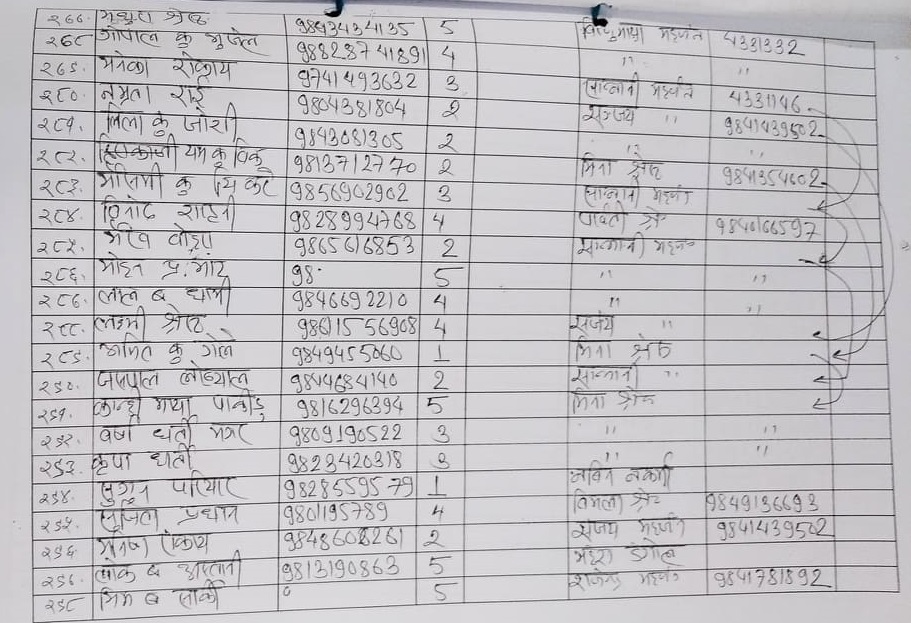 २७७. मथुरा श्रेष्ठ 9843434135 5 विष्णुमाया महर्जन 4331332
२७८ गोपाल कु भुजेल 98828741891 4 " "
२७९. मेनका रोकाय 9741493632 3 सान्नानी महर्जन 4331146
२८०. नम्रता राई 9804381804 2 सञ्जय " 9841439502
२८१. लिला कु जोशी 9843081305 2 " "
२८२. 9813712770 2 मिना श्रेष्ठ 9841354602
२८३. कु 9856902902 3 सान्नानी महर्जन
२८४. विनोद 9828994768 4 पार्वती श्रेष्ठ 9840166597
२८५. 9865616853 2 सान्नानी महर्जन
२८६. मोहन प्र. 98. 5 " "
२८७. लाल ब 9846692210 4 " "
२८८. लक्ष्मी श्रेष्ठ 98611556908 4 सञ्जय "
२८९. अमित कु गोले 9849455060 1 मिना श्रेष्ठ
२९०. 9844684140 2 सान्नानी "
२९१. कान्छी माया 9816296394 5 मिना श्रेष्ठ
२९२. वर्षा घर्ती मगर 9809190522 3 " "
२९३. कृपा घर्ती 9823420318 3 " "
२९४. परियार 9828559579 1 नविन नकर्मी
२९५. सुजिता प्रधान 9801195789 4 विमला श्रेष्ठ 9849136693
२९६ 9848608261 2 सञ्जय महर्जन 9841439502
२९७. लोक ब 9813190863 5 डंगोल
२९८ भिम ब सार्की 5 राजेन्द्र महर्जन 9841781892